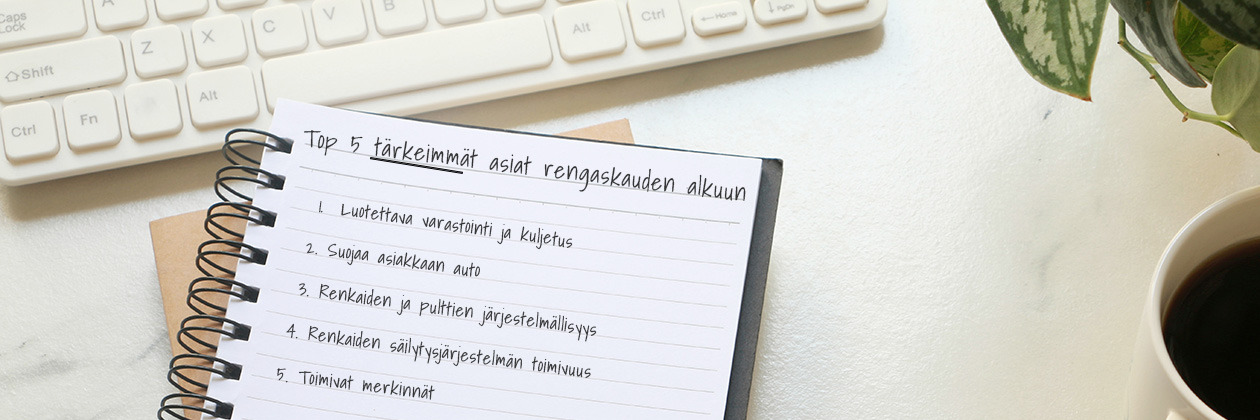 A
Caps Lock
Z
X
C
V
B
Alt
Ctrl
←Home
↓PgDn
Shift
Ctrl
Fn
Alt
Top 5 tärkeimmät asiat rengaskauden alkuun
1. Luotettava varastointi ja kuljetus
2. Suojaa asiakkaan auto
3. Renkaiden ja pulttien järjestelmällisyys
4. Renkaiden säilytysjärjestelmän toimivuus
5. Toimivat merkinnät